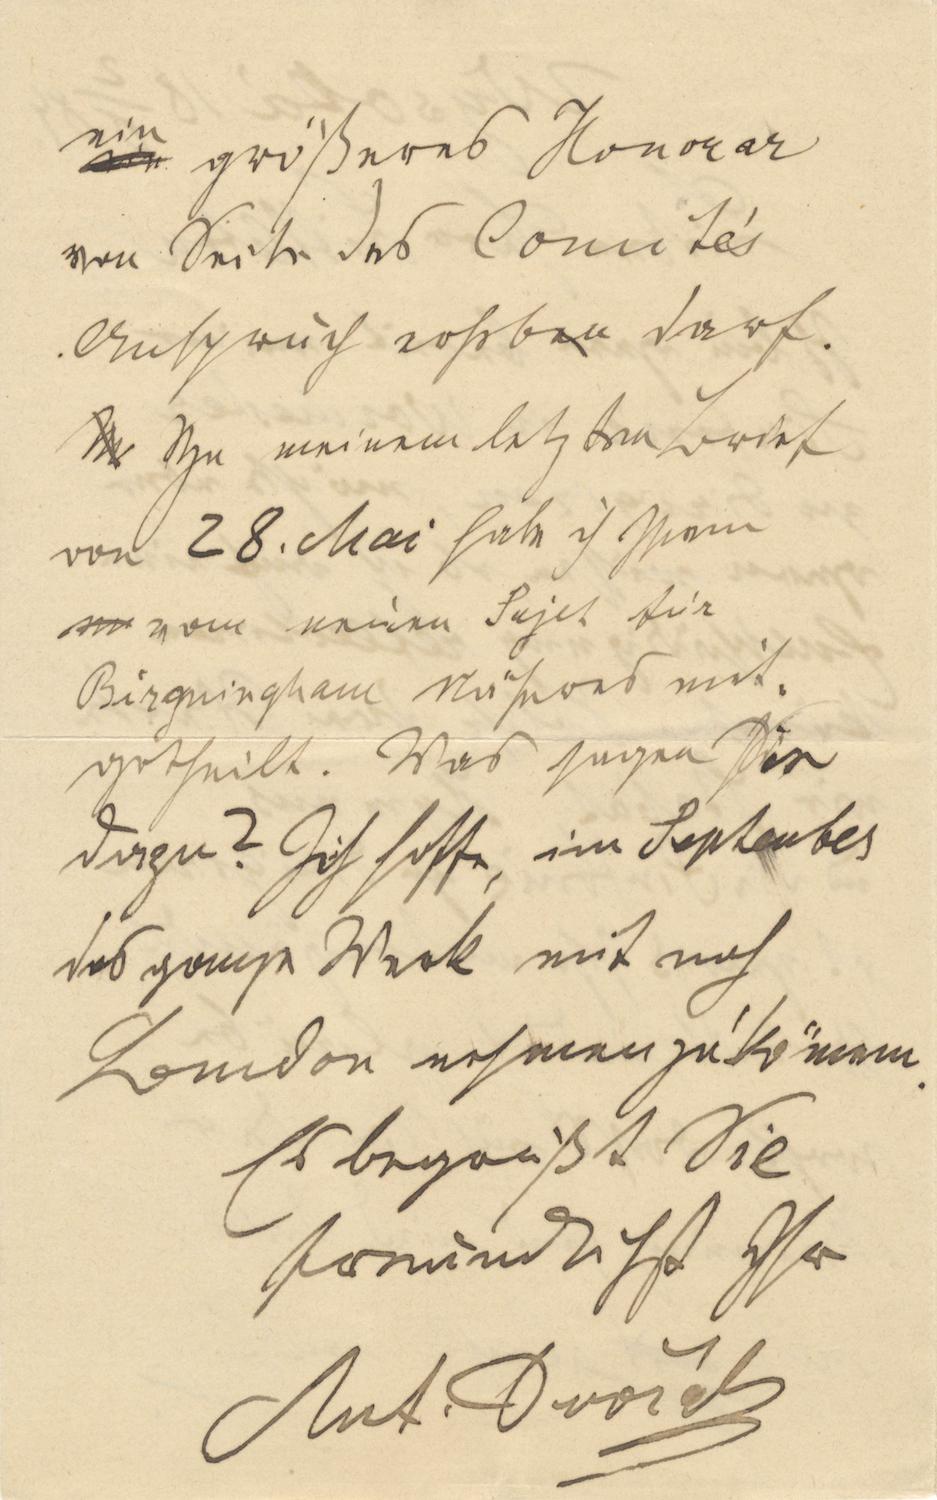 ein größeres Honorar
von Seite des Comités
Anspruch erheben darf.
In meinem letzten Brief
von 28. Mai habe ich Ihnen
vom neuen Sujet für
Birgmingham Näheres mit-
getheilt. Was sagen Sie
dazu? Ich hoffe, im September
das ganze Werk mit nach
London nehmen zu können.
Es begrüßt Sie
freundlichst Ihr
Ant. Dvořák